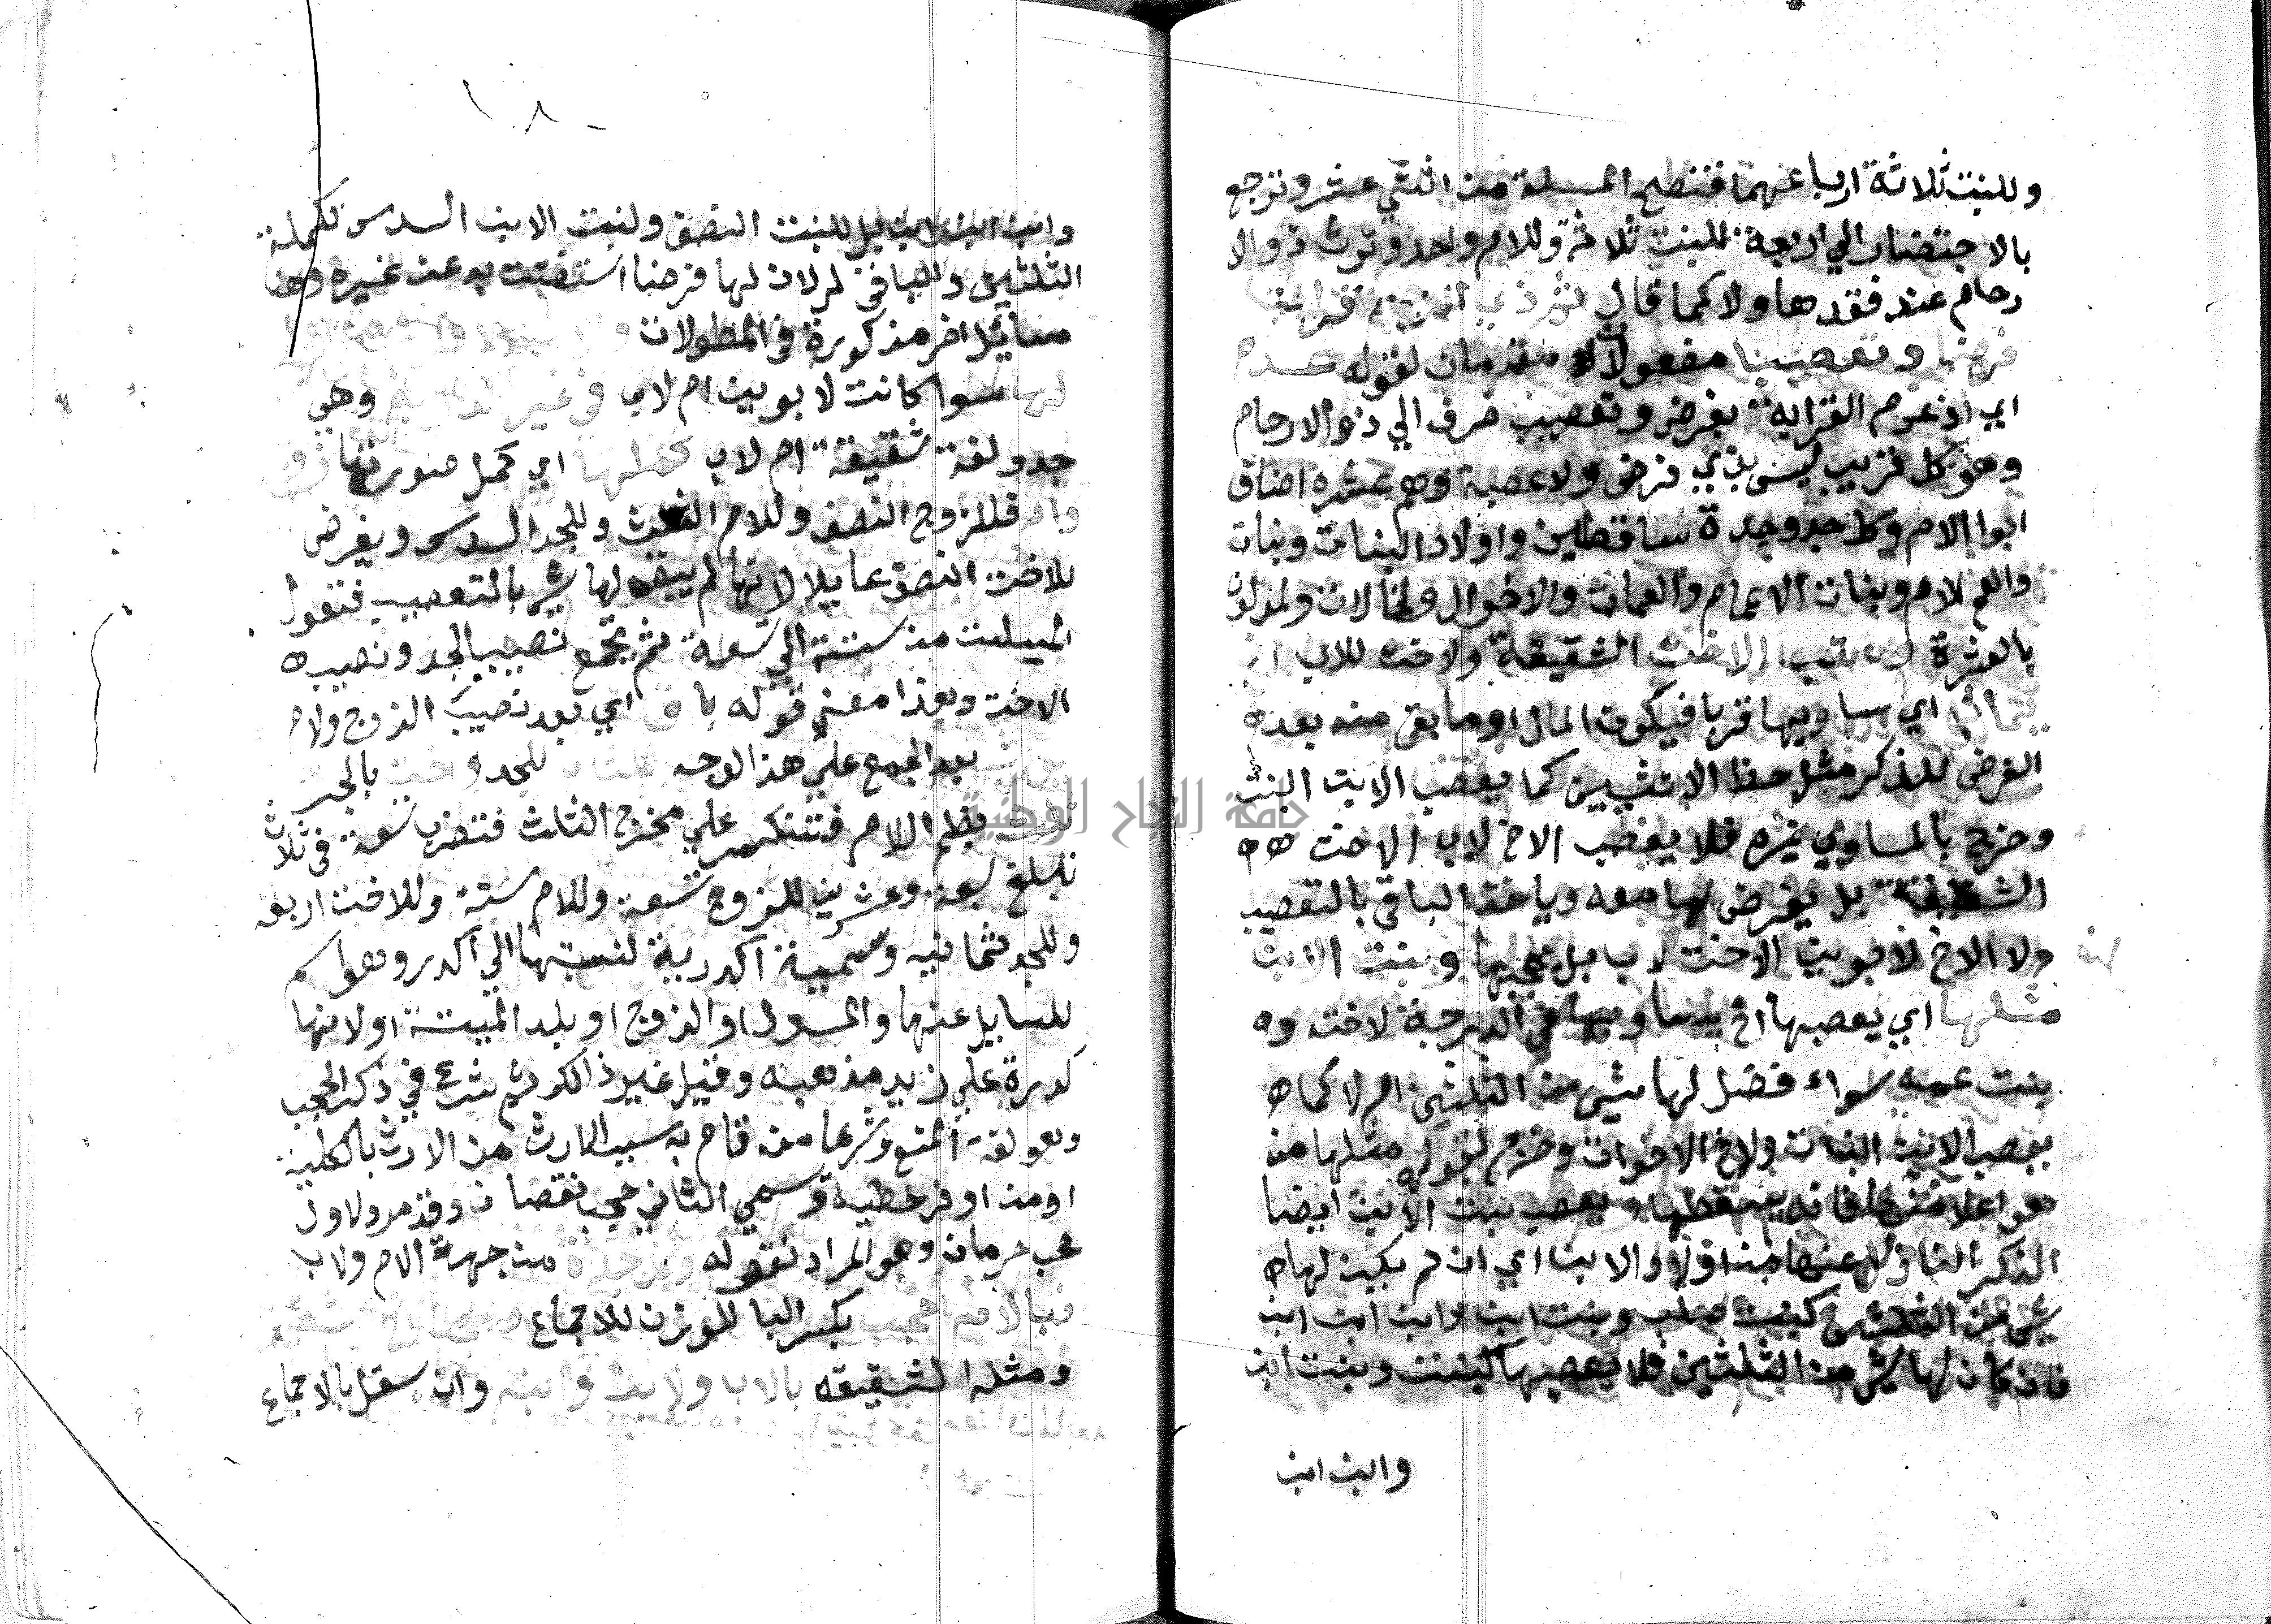 وللبنت ثلاثة ارباعهما فتصح المسيلة من اثني عشر وترجع
بالاختصار الي اربعة للبنت ثلاثة وللام واحد وتوث ذوالا
رحام عند فقدها ولا كما قال
وتعصيبا مفعولان مقدمان لقوله عدم
اي اذ عدم القرابه بفرض وتعصيب صرف الي ذو الارحام
وهو كل قريب ليس بذي فرض ولا عصبة وهم عشره اصناف
ابوا الام وكل جد وجدة ساقطين واولاد البنات وبنات
والعم للام وبنات الاعمام والعمات والاخوال ولخالات ولمدلون
بالعشرة الاخت الشقيقة ولاخت للاب
اي ساويها قربا فيكون المال او ما بقي منه بعده
الفرض للذكر مثل حظ الانثيين كما يعصب الابن البنت
وخرج بالمساوي غيره فلا يعصب الاخ لاب الاخت
الشقيقة بل يفرض لها معه وياخذ الباقي بالتعصيب
ولا الاخ لابوين الاخت لاب بل يحجبها وبنت الابن
مثلها اي يعصبها اخ يساويها في الدرجة لاخته وه
بنت عمه سواء فضل لها شي من الثلثين ام لا كما
يعصب الابن البنات ولاخ الاخوات وخرج لقوله مثلها من
هو اعلا منها فانه يسقطها ويعصب بنت الابن ايضا
الذكر النازل عنها من اولاد الابن اي ان لم يكن لها
شي من الثلثين كبنت صلب وبنت ابن وابن ابن ابن
فان كان لها شي من الثلثين فلا يعصبها كبنت وبنت ابن
وابن ابن
١٠٨
وابن ابن ابن بل للبنت النصف ولبنت الابن السدس تكملة
الثلثين والباقي له لان لها فرضا استغنت به عن غيره وهنا
مسايل اخر مذكورة في المطولات
لها سوا كانت لابوين ام لاب في غير وهي
جد ولغة شقيقة ام لاب اي كمل صورتها
وام فللزوج النصف وللام الثلث وللجد السدس ويفرض
للاخت النصف عايلا لانها لم يبق لها شي بالتعصيب فتعول
المسيلت من ستة الي تسعة ثم يجمع نصيب الجد ونصيب
الاخت وهذا معني قوله باق اي بعد نصيب الزوج ولام
بعد الجمع علي هذا الوجه للجد بالجبر
فتنكسر علي مخرج الثلث فتضرب تسعة في ثلاث
تبلغ سبعة وعشرين للزوج تسعة وللام ستة وللاخت اربعه
وللجد ثمانيه وسميية اكدرية لنسبتها الي اكدر وهو اسم
للسايل عنها والمسول او الزوج او بلد الميتة او لانها
كدرة علي زيد مذهبه وقيل غير ذالك ثم شرع في ذكر الحجب
وهو لغة المنع وشرعا من قام به سبب الارث من الارث بالكلية
او من اوفر حظيه وسمي الثاني حجب نقصان وقد مر ولاول
حجب حرمان وهو المراد بقوله جدة من جهة الام ولاب
بكسر البا للوزن للاجماع
ومثله الشقيقه بالاب ولابن وابنه وان سفل بالاجماع
جامعة النجاح الوطنية